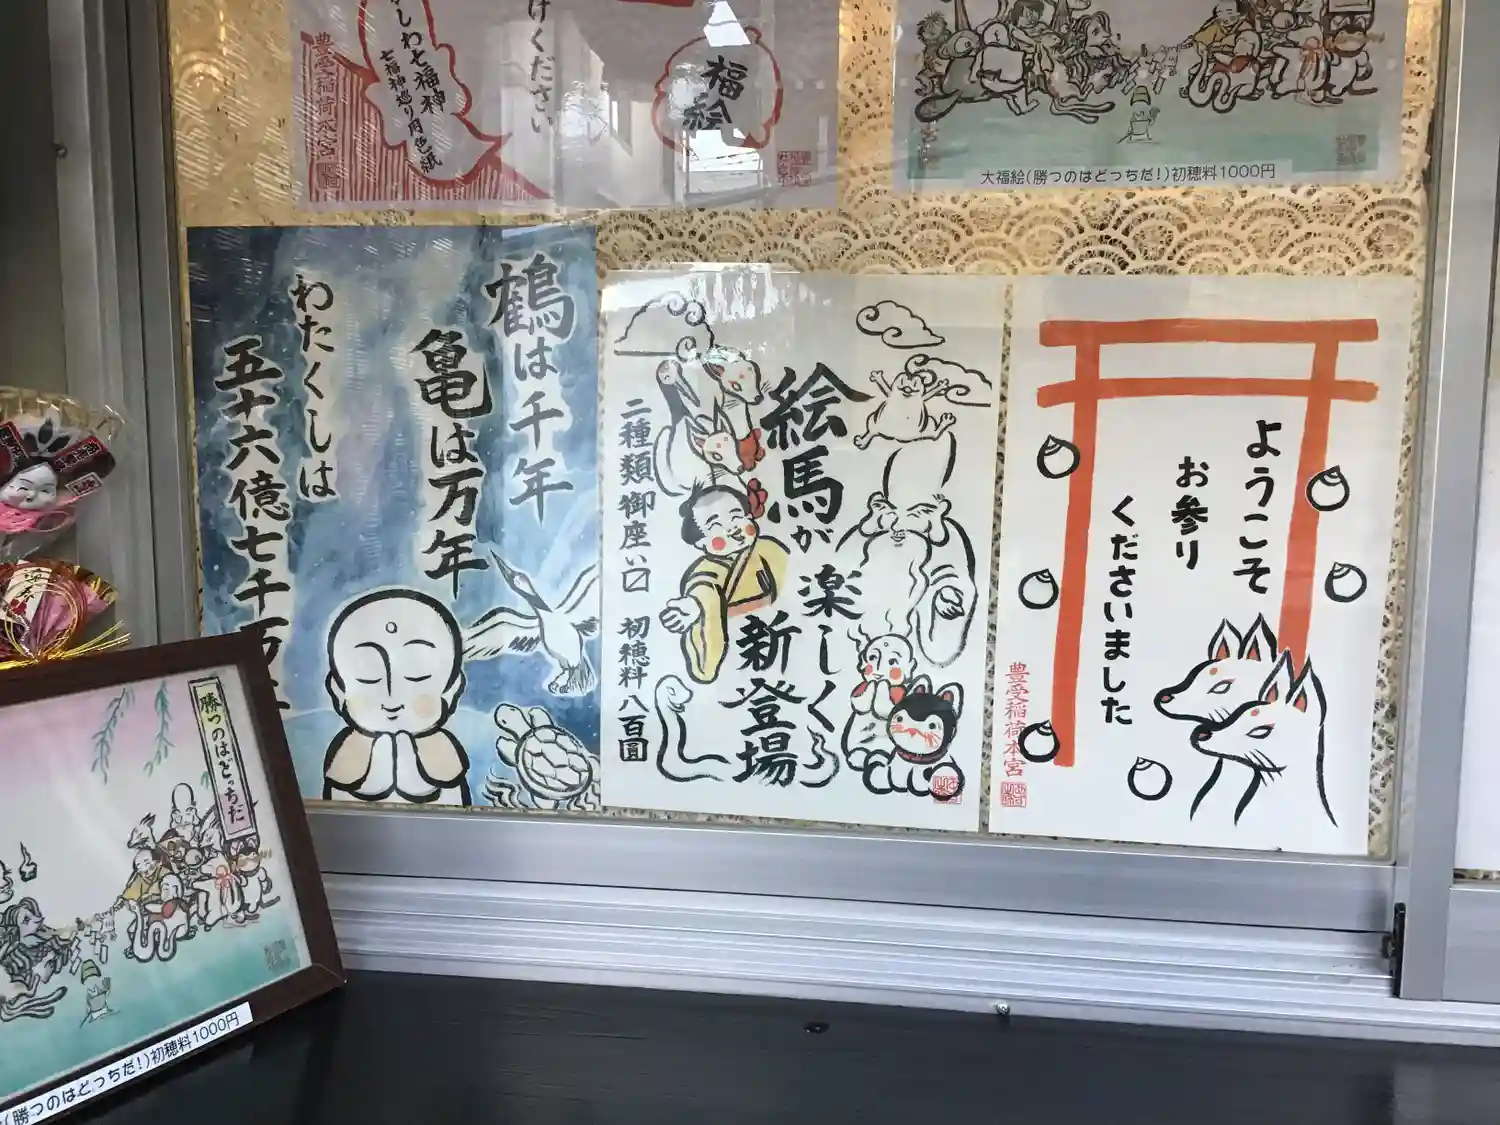 けください
しわ七福神
七福神巡り用色紙
豊受稲荷本宮
福絵
大福絵(勝つのはどっちだ!)初穂料1000円
鶴は千年
亀は万年
わたくしは
五十六億七千万
絵馬が
楽しく
新登場
二種類御座い〼
初穂料八百圓
ようこそ
お参り
くださいました
豊受稲荷本宮
勝つのはどっちだ
(勝つのはどっちだ!)初穂料1000円